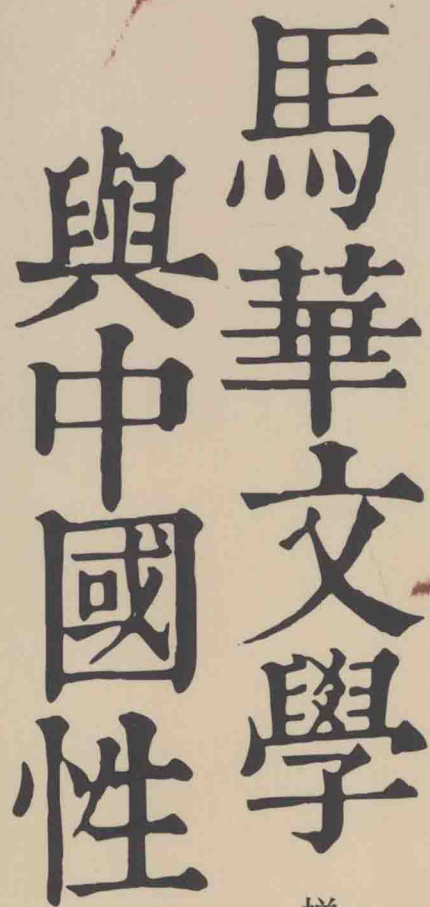 馬華文學
與中國性